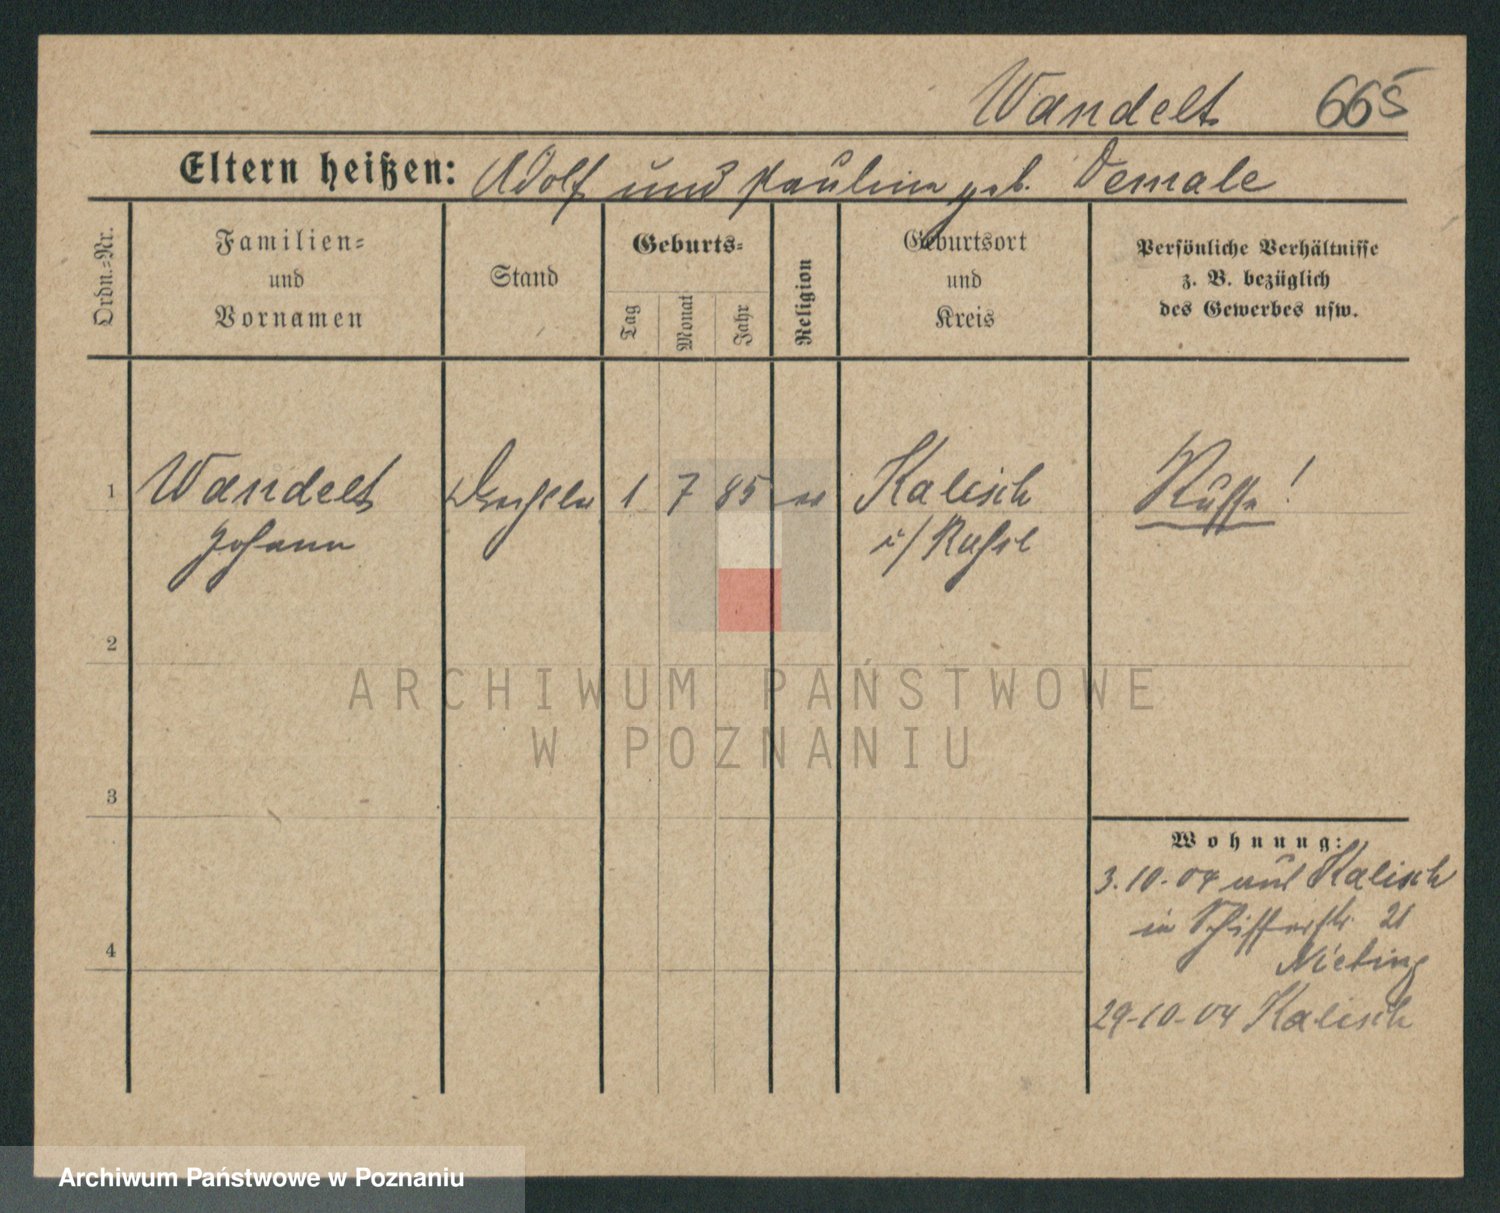 Wandelt 665
Eltern heißen: Adolf und Pauline geb. Demale
Ordn.=Nr.
Familien=
und
Vornamen
Stand
Geburts=
Tag
Monat
Jahr
Religion
Geburtsort
und
Kreis
Persönliche Verhältnisse
z. B. bezüglich
des Gewerbes usw.
1 Wandelt 1 7 85 Kalisch Russe!
Johann i/ Russl
2
3
4
Wohnung:
3.10.04 aus Kalisch
in Schifferstr. 21
29-10-04 Kalisch
ARCHIWUM PAŃSTWOWE
W POZNANIU
Archiwum Państwowe w Poznaniu